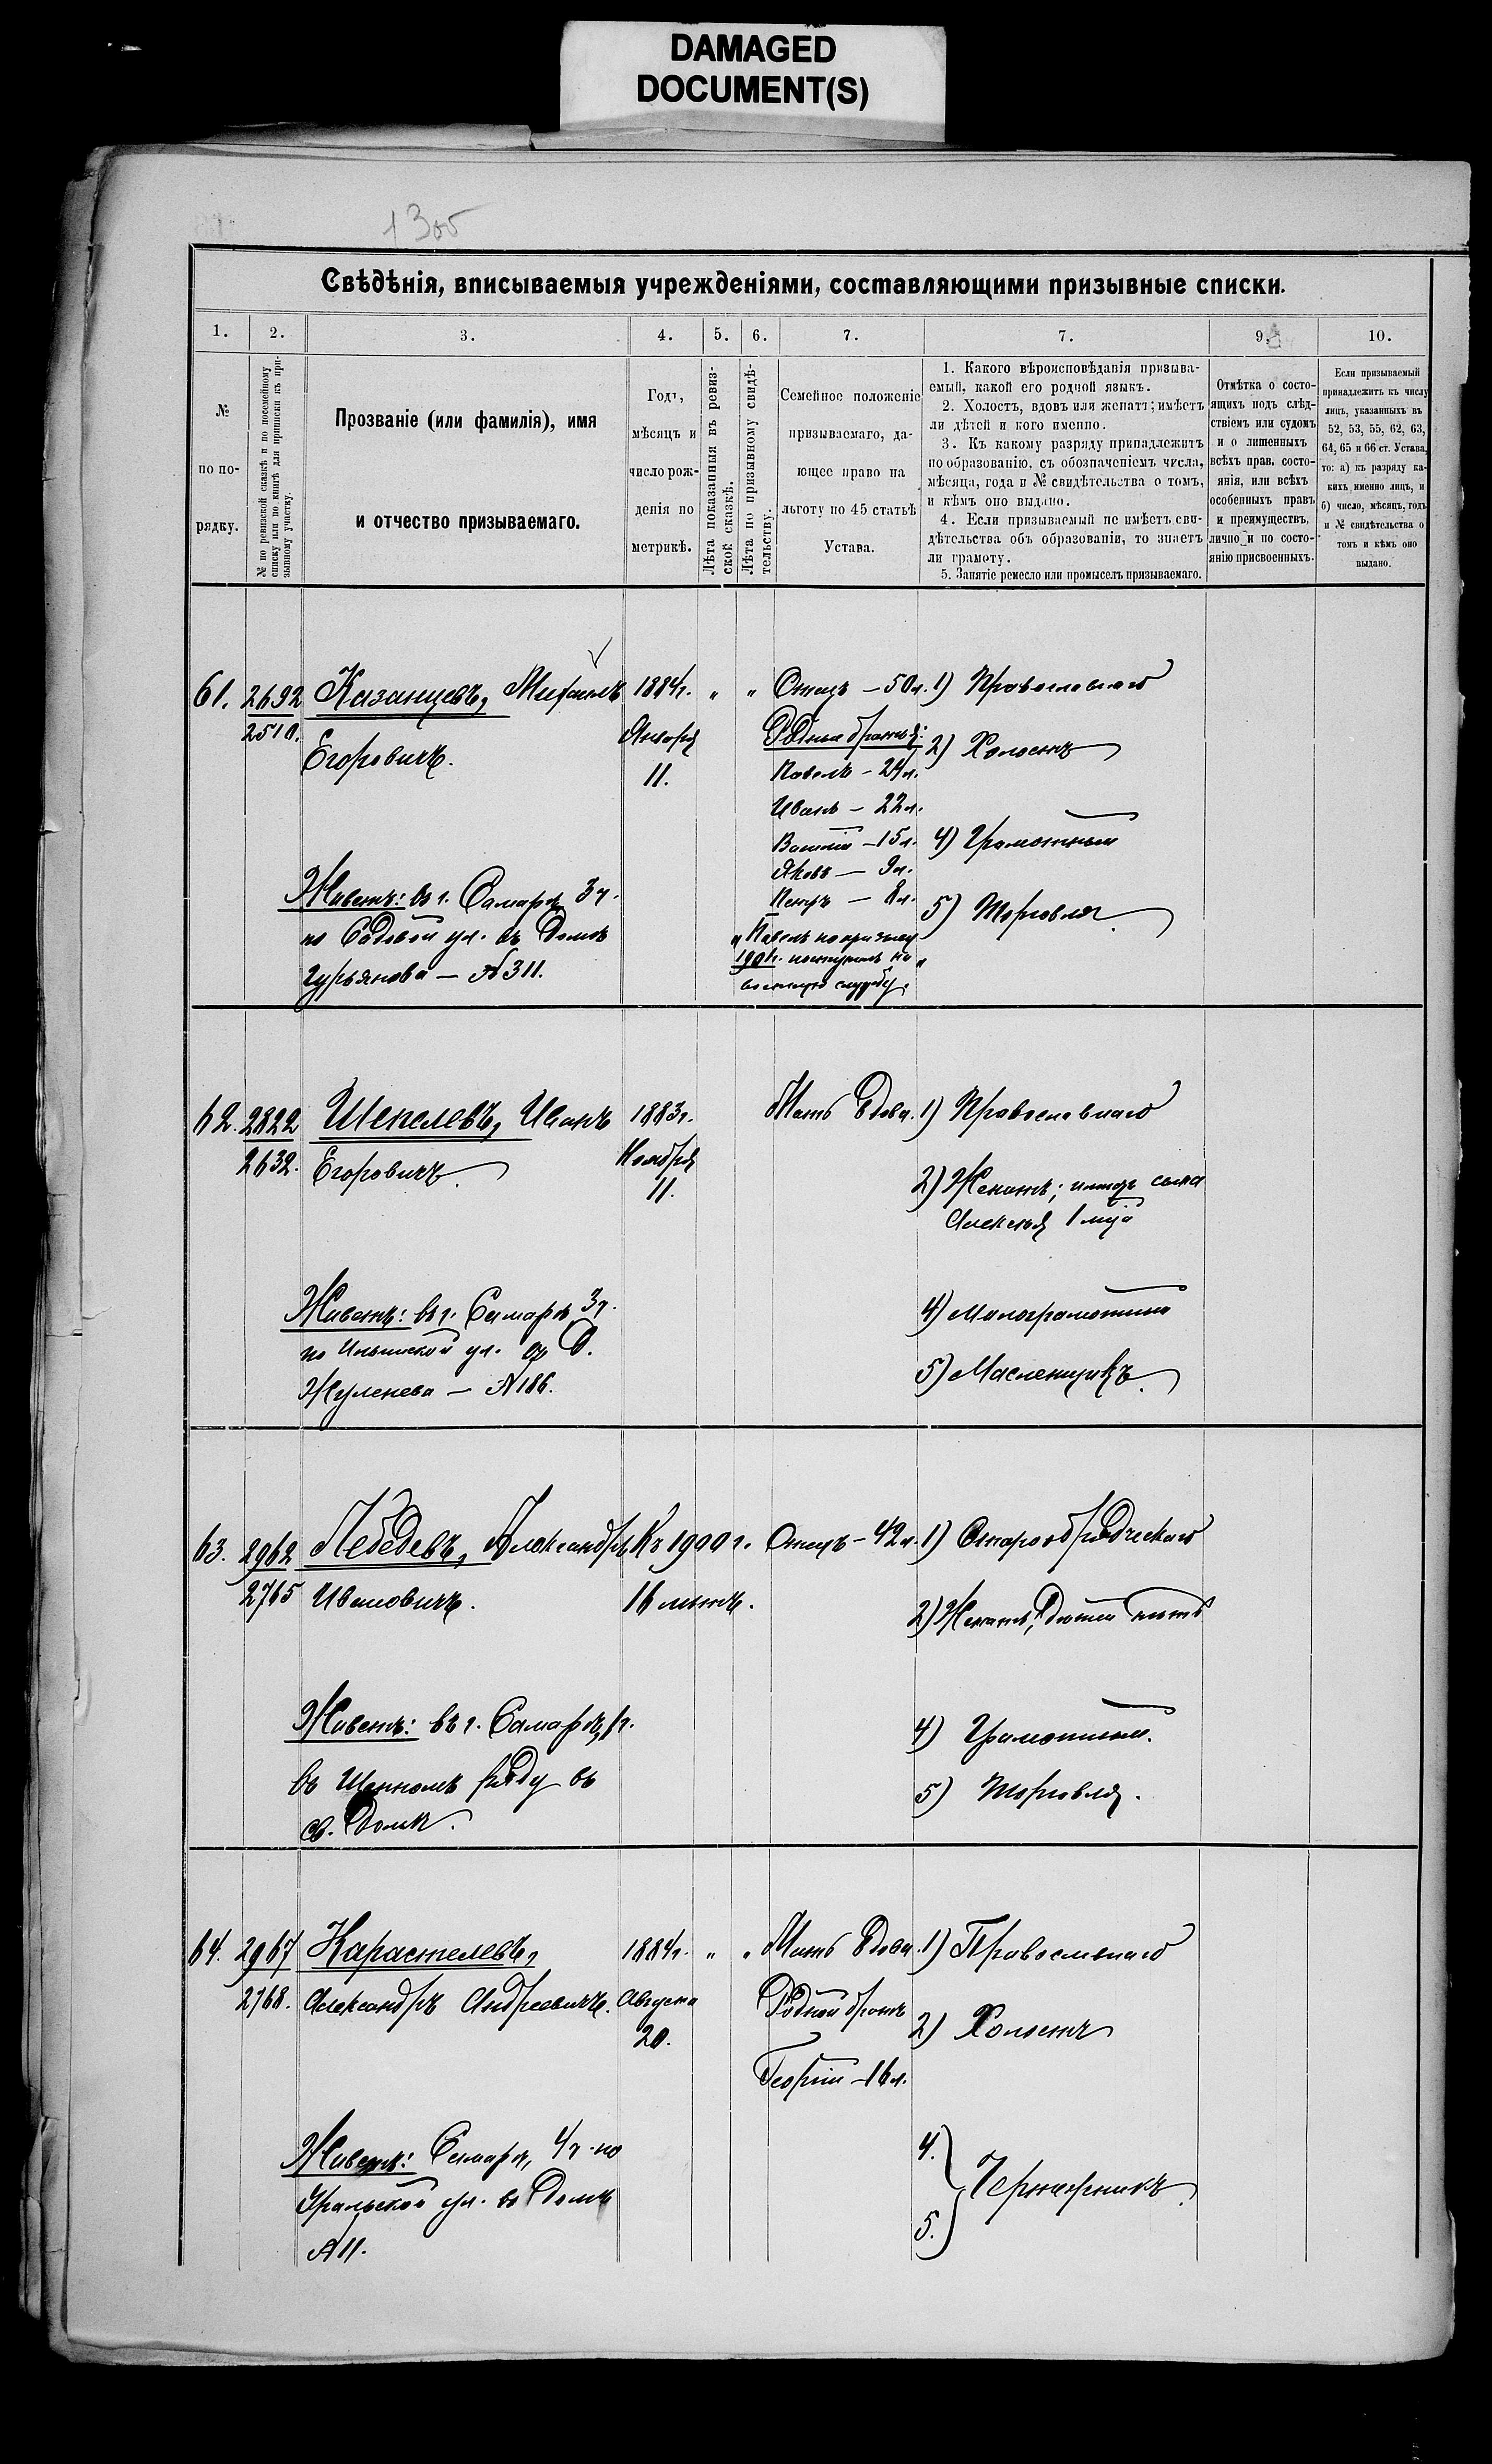 DAMAGED
DOCUMENT(S)
Свѣдѣнія, вписываемыя учрежденіями, составляющими призывные списки.
1. 2. 3. 4. 5. 6. 7. 7. 9. 10.
№
по по-
рядку.
№ по ревизской сказкѣ и по посемейному
списку или по книгѣ для приписки къ при-
зывному участку.
Прозваніе (или фамилія), имя
и отчество призываемаго.
Годъ,
мѣсяцъ и
число рож-
денія по
метрикѣ.
Лѣта показанныя въ ревиз-
ской сказкѣ.
Лѣта по призывному свидѣ-
тельству.
Семейное положеніе
призываемаго, да-
ющее право на
льготу по 45 статьѣ
Устава.
1. Какого вѣроисповѣданія призыва-
емый, какой его родной языкъ.
2. Холостъ, вдовъ или женатъ; имѣетъ
ли дѣтей и кого именно.
3. Къ какому разряду принадлежитъ
по образованію, съ обозначеніемъ числа,
мѣсяца, года и № свидѣтельства о томъ,
и кѣмъ оно выдано.
4. Если призываемый не имѣетъ сви-
дѣтельства объ образованіи, то знаетъ
ли грамоту.
5. Занятіе ремесло или промыселъ призываемаго.
Отмѣтка о состо-
ящихъ подъ слѣд-
ствіемъ или судомъ
и о лишенныхъ
всѣхъ прав. состо-
янія, или всѣхъ
особенныхъ правъ
и преимуществъ,
лично и по состо-
янію присвоенныхъ.
Если призываемый
принадлежитъ къ числу
лицъ, указанныхъ въ
52, 53, 55, 62, 63,
64, 65 и 66 ст. Устава,
то: а) къ разряду ка-
кихъ именно лицъ, и
б) число, мѣсяцъ, годъ
и № свидѣтельства о
томъ и кѣмъ оно
выдано.
61. 2692 Казанцевъ, Михаилъ 1884г. " " Отецъ — 50л. 1) Православнаго
2510. Егоровичъ. Января 11. Родные братья: 2) Холостъ
Павелъ — 24л.
Иванъ — 22л.
Василій — 15л. 4) Грамотный
Яковъ — 9л.
Петръ — 8л. 5) Торговля
Живетъ: въ г. Самарѣ 3ч.
по Садовой ул. въ домѣ
Гурьянова — № 311.
"Павелъ по призыву
1901г. поступилъ на
военную службу"
62. 2822 Шепелевъ, Иванъ 1883г. Мать вдова. 1) Православнаго
2632. Егоровичъ. Ноября 11.
2) Женатъ; имѣетъ сына
Алексѣя 1 года
Живетъ: въ г. Самарѣ 3ч. 4) Малограмотный
по Ильинской ул. д.
Жуленева — № 186. 5) Масленщикъ
63. 2962 Лебедевъ, Александръ Къ 1900 г. Отецъ — 42л. 1) Старообрядческаго
2765 Ивановичъ. 16 лѣтъ.
2) Женатъ, дѣтей нѣтъ
Живетъ: въ г. Самарѣ, 1ч. 4) Грамотный.
въ Щепномъ ряду въ 5) Торговля.
св. домѣ.
64. 2967 Карастелевъ, 1884г. " " Мать вдова. 1) Православнаго
2768. Александръ Андреевичъ. Августа 20. Родной братъ 2) Холостъ
Георгій — 16л.
Живетъ: Самара, 4ч. по 4.
Уральской ул. въ домѣ 5.
№ 11.